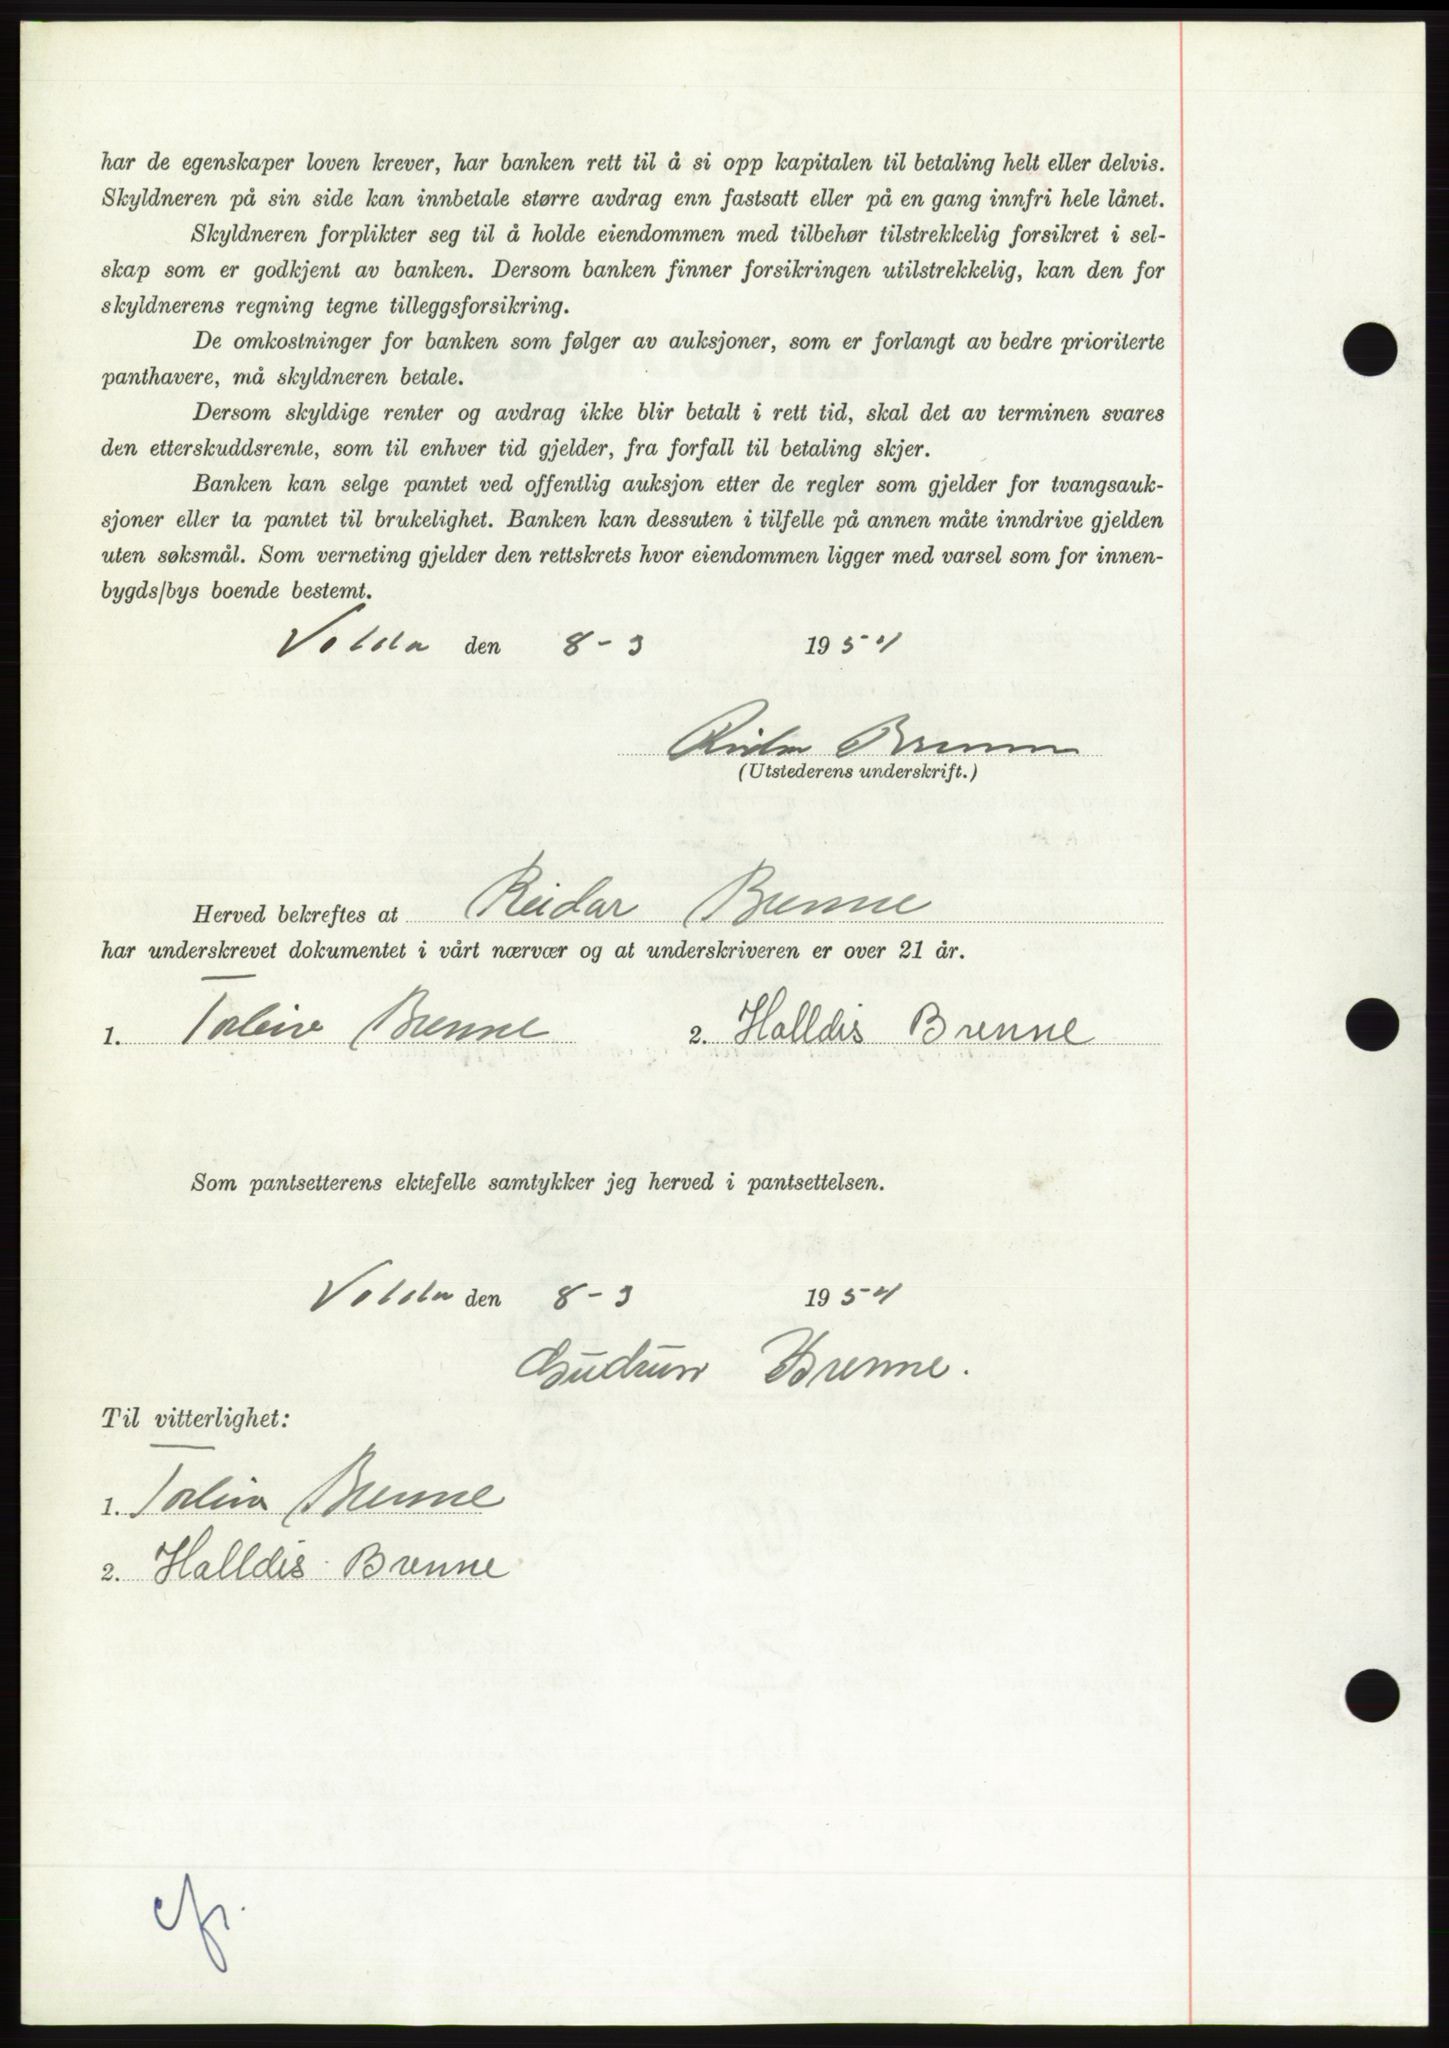 har de egenskaper loven krever, har banken rett til å si opp kapitalen til betaling helt eller delvis.
Skyldneren på sin side kan innbetale større avdrag enn fastsatt eller på en gang innfri hele lånet.
Skyldneren forplikter seg til å holde eiendommen med tilbehør tilstrekkelig forsikret i sel-
skap som er godkjent av banken. Dersom banken finner forsikringen utilstrekkelig, kan den for
skyldnerens regning tegne tilleggsforsikring.
De omkostninger for banken som følger av auksjoner, som er forlangt av bedre prioriterte
panthavere, må skyldneren betale.
Dersom skyldige renter og avdrag ikke blir betalt i rett tid, skal det av terminen svares
den etterskuddsrente, som til enhver tid gjelder, fra forfall til betaling skjer.
Banken kan selge pantet ved offentlig auksjon etter de regler som gjelder for tvangsauk-
sjoner eller ta pantet til brukelighet. Banken kan dessuten i tilfelle på annen måte inndrive gjelden
uten søksmål. Som verneting gjelder den rettskrets hvor eiendommen ligger med varsel som for innen-
bygds/bys boende bestemt.
Volda den 8-3 1954
Reidar Brenne
(Utstederens underskrift.)
Herved bekreftes at Reidar Brenne
har underskrevet dokumentet i vårt nærvær og at underskriveren er over 21 år.
1. Torleiv Brenne 2. Halldis Brenne
Som pantsetterens ektefelle samtykker jeg herved i pantsettelsen.
Volda den 8-3 1954
Gudrun Brenne.
Til vitterlighet:
1. Torleiv Brenne
2. Halldis Brenne